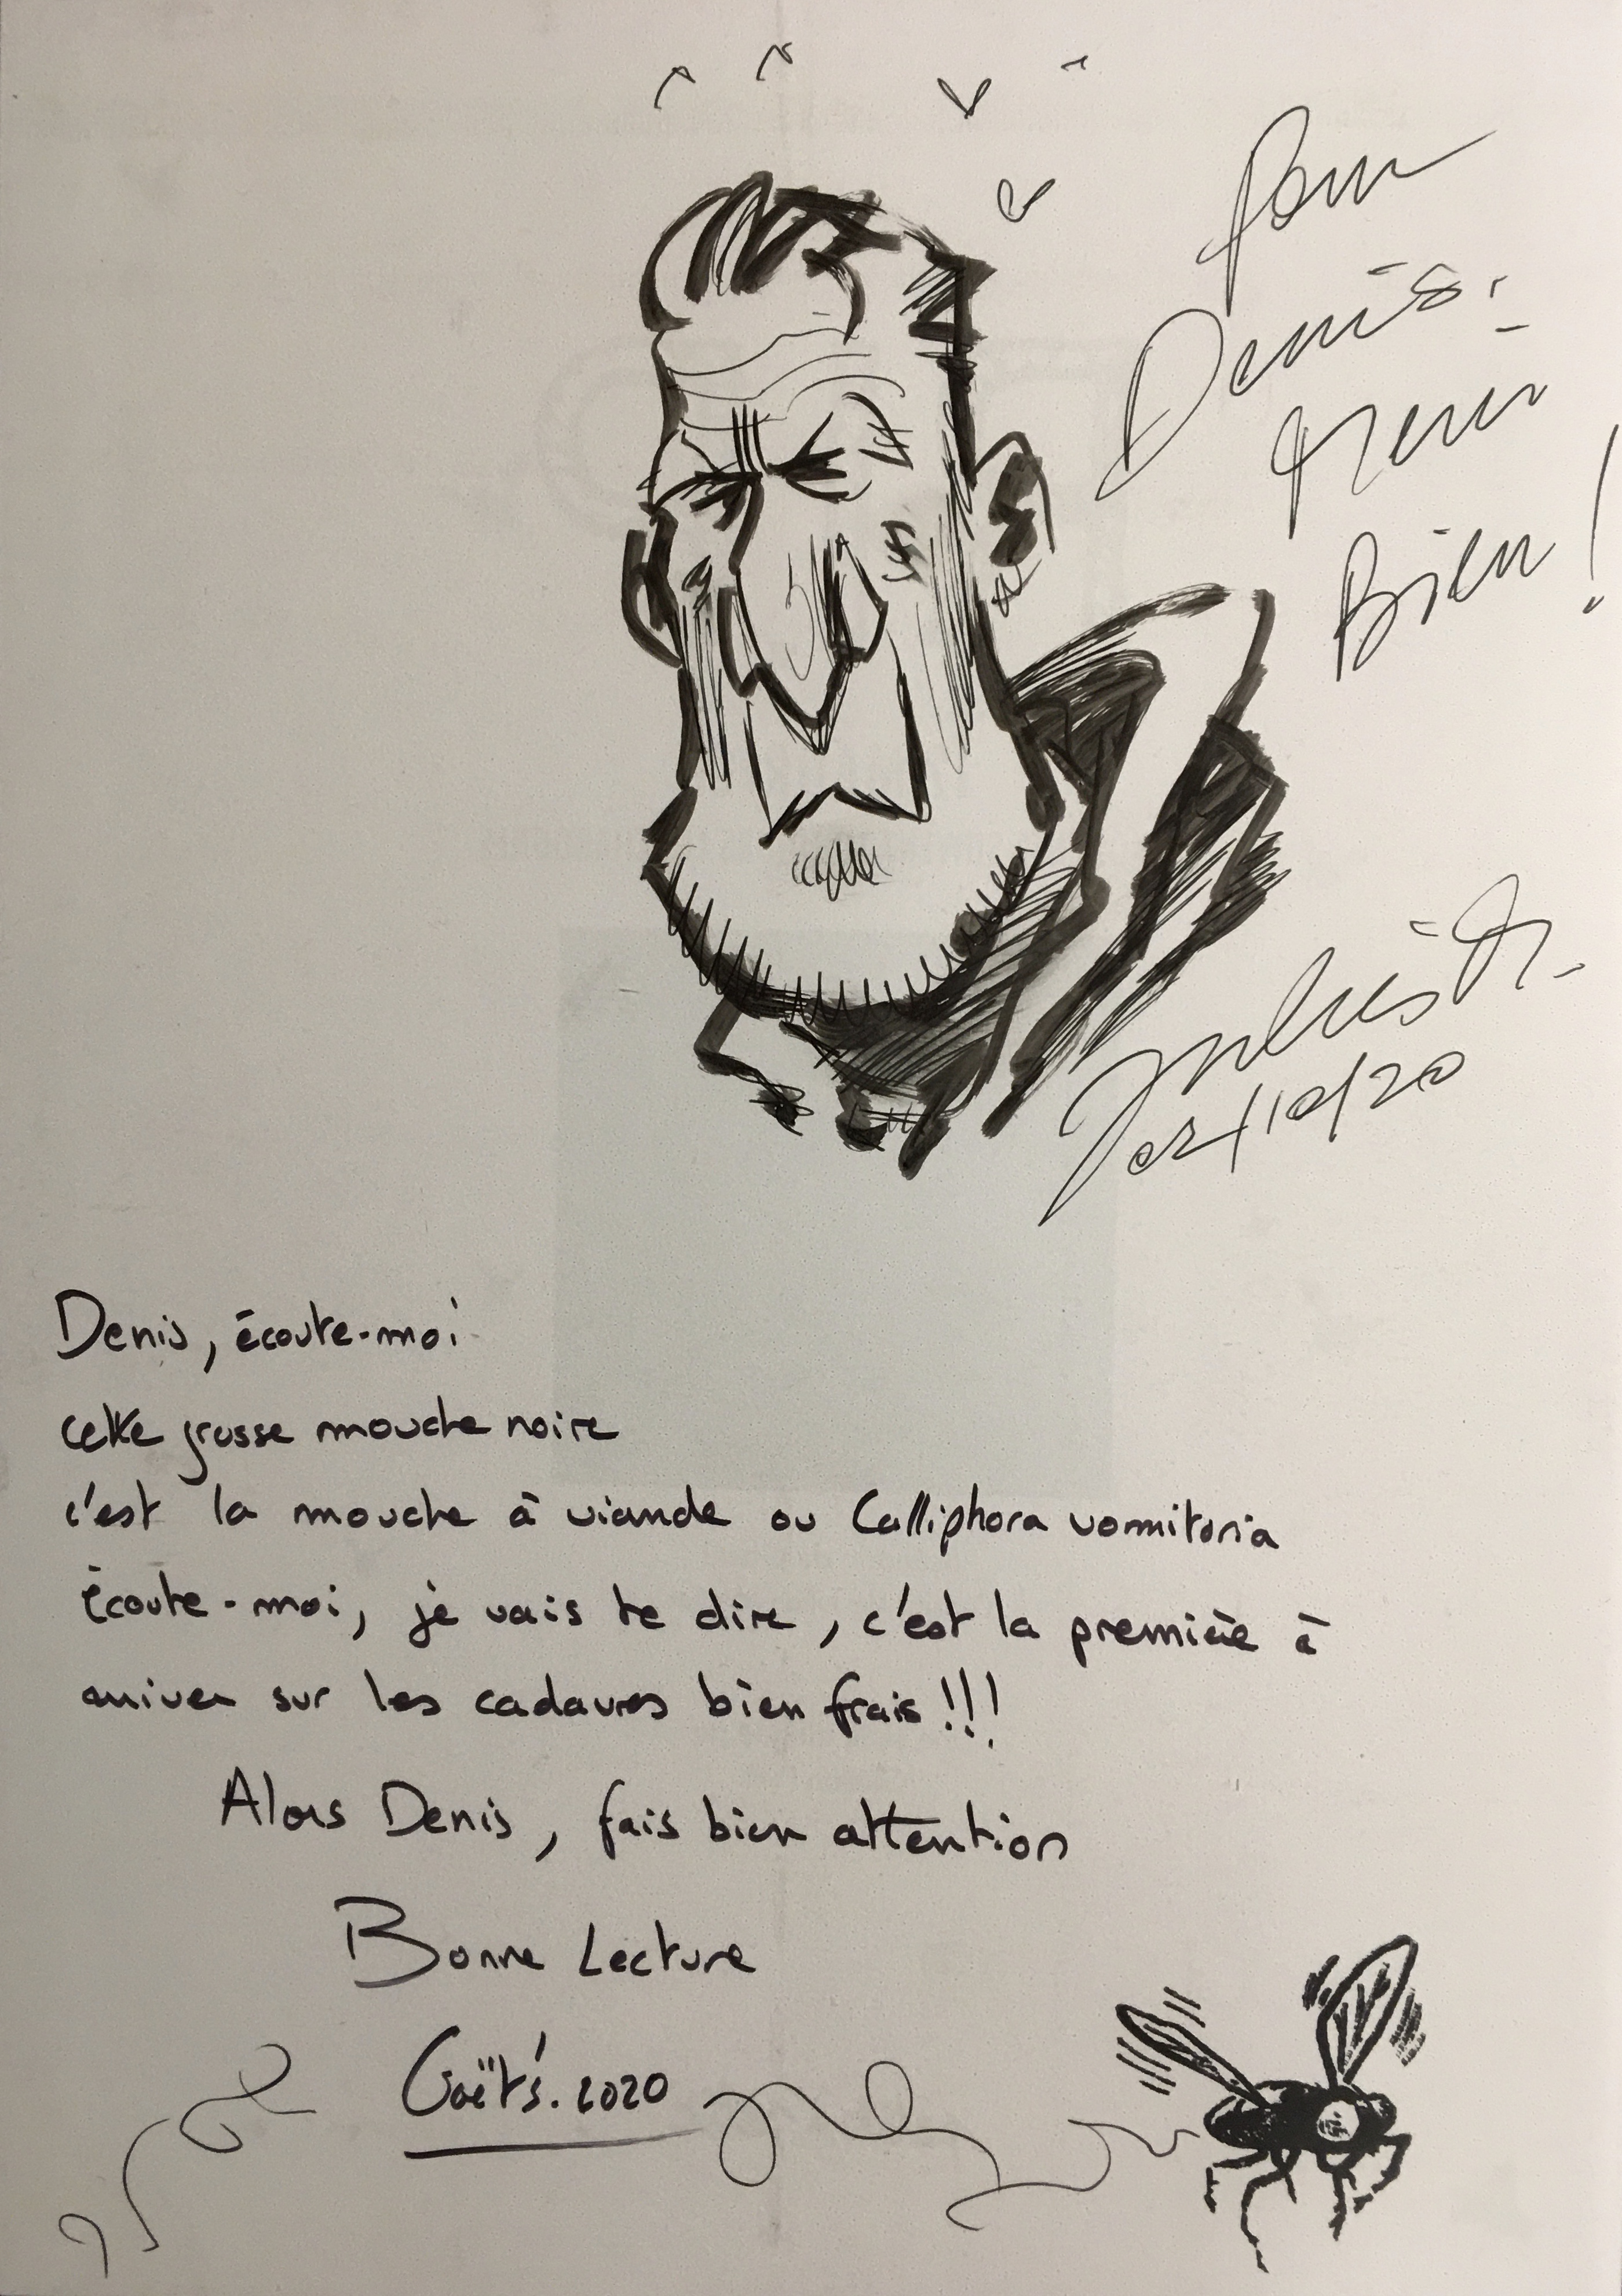 Pour
Denis.
Merci
Bien !
02/10/20
Denis, écoute-moi
cette grosse mouche noire
c'est la mouche à viande ou Calliphora vomitoria
Écoute-moi, je vais te dire, c'est la première à
arriver sur les cadavres bien frais !!!
Alors Denis, fais bien attention
Bonne Lecture
Gaët's. 2020